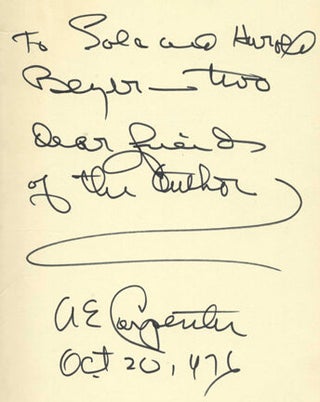 To Sola and Harold
Beyer — two
dear friends
of the author
A E Carpenter
Oct 20, 1976